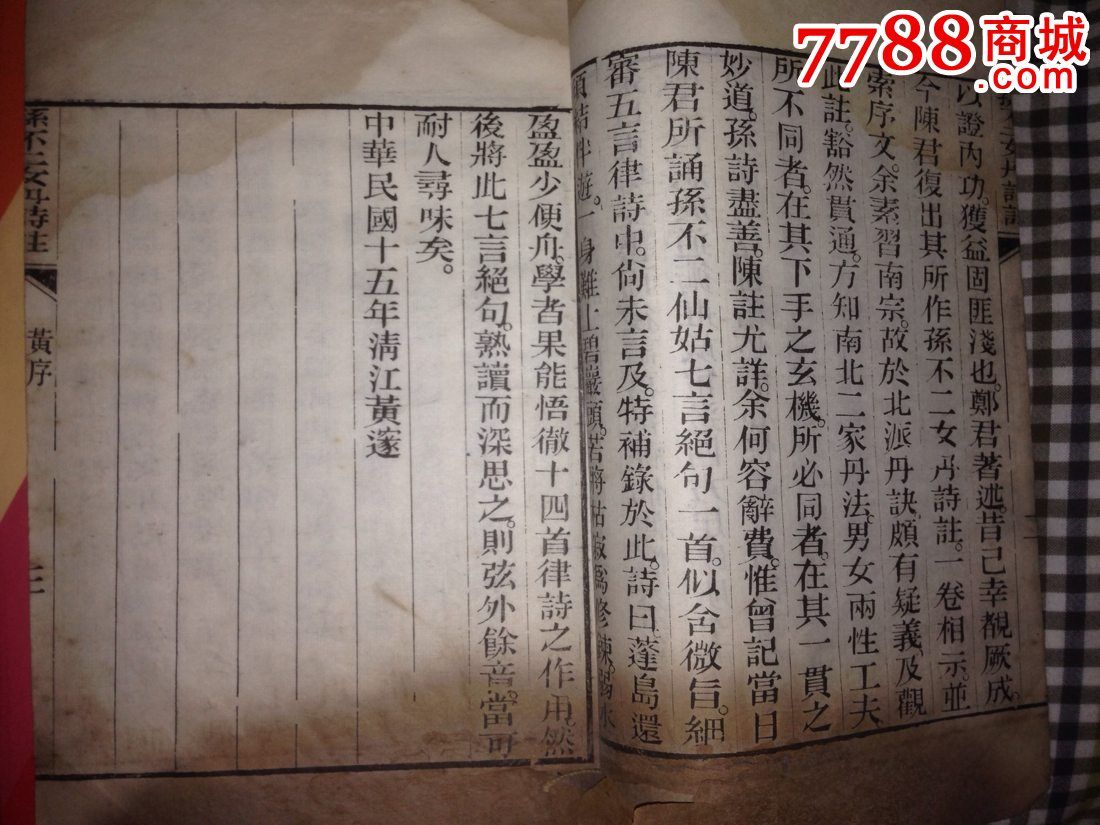 7788商城
.com
以證內功。獲益固匪淺也。鄭君著述。昔已幸覩厥成。
今陳君復出其所作孫不二女丹詩註。一卷相示。並
索序文。余素習南宗。故於北派丹訣。頗有疑義。及觀
此註。豁然貫通。方知南北二家丹法。男女兩性工夫
所不同者。在其下手之玄機。所必同者。在其一貫之
妙道。孫詩盡善。陳註尤詳。余何容辭費。惟曾記當日
陳君所誦孫不二仙姑七言絕句一首。似含微旨。細
審五言律詩中。尙未言及。特補錄於此。詩曰蓬島還
須結伴遊。一身難上碧巖頭。若將枯寂爲修鍊。弱水
盈盈少便舟。學者果能悟徹十四首律詩之作用。然
後將此七言絕句。熟讀而深思之。則弦外餘音。當可
耐人尋味矣。
中華民國十五年淸江黃邃
孫不二女丹詩註
黃序
二